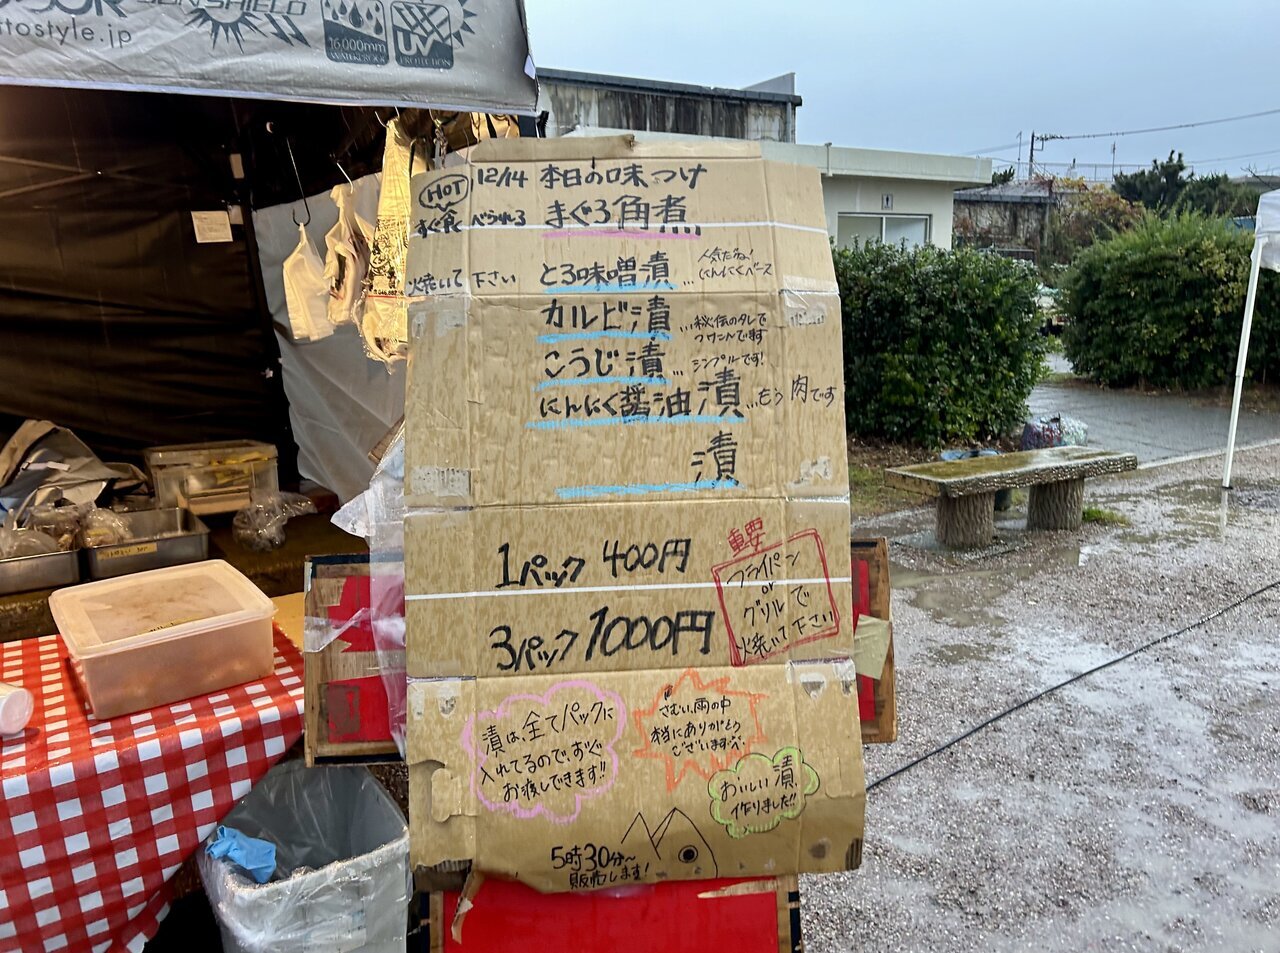 SUN SHIELD
ttostyle.jp
16,000mm
WATERPROOF
UV
PROTECTION
HOT
12/14 本日の味つけ
すぐ食べられる まぐろ角煮
焼いて下さい とろ味噌漬…
人気だね!
にんにくベース
カルビ漬…秘伝のタレで
こうじ漬…シンプルです!
にんにく醤油漬…もう肉です
漬
1パック 400円
3パック 1000円
重要
フライパン
or
グリルで
焼いて下さい
漬は、全てパックに
入れてるので、すぐ
お渡しできます!!
さむい、雨の中
本当にありがとう
ございます
おいしい漬、
作りました!!
5時30分~
販売します!